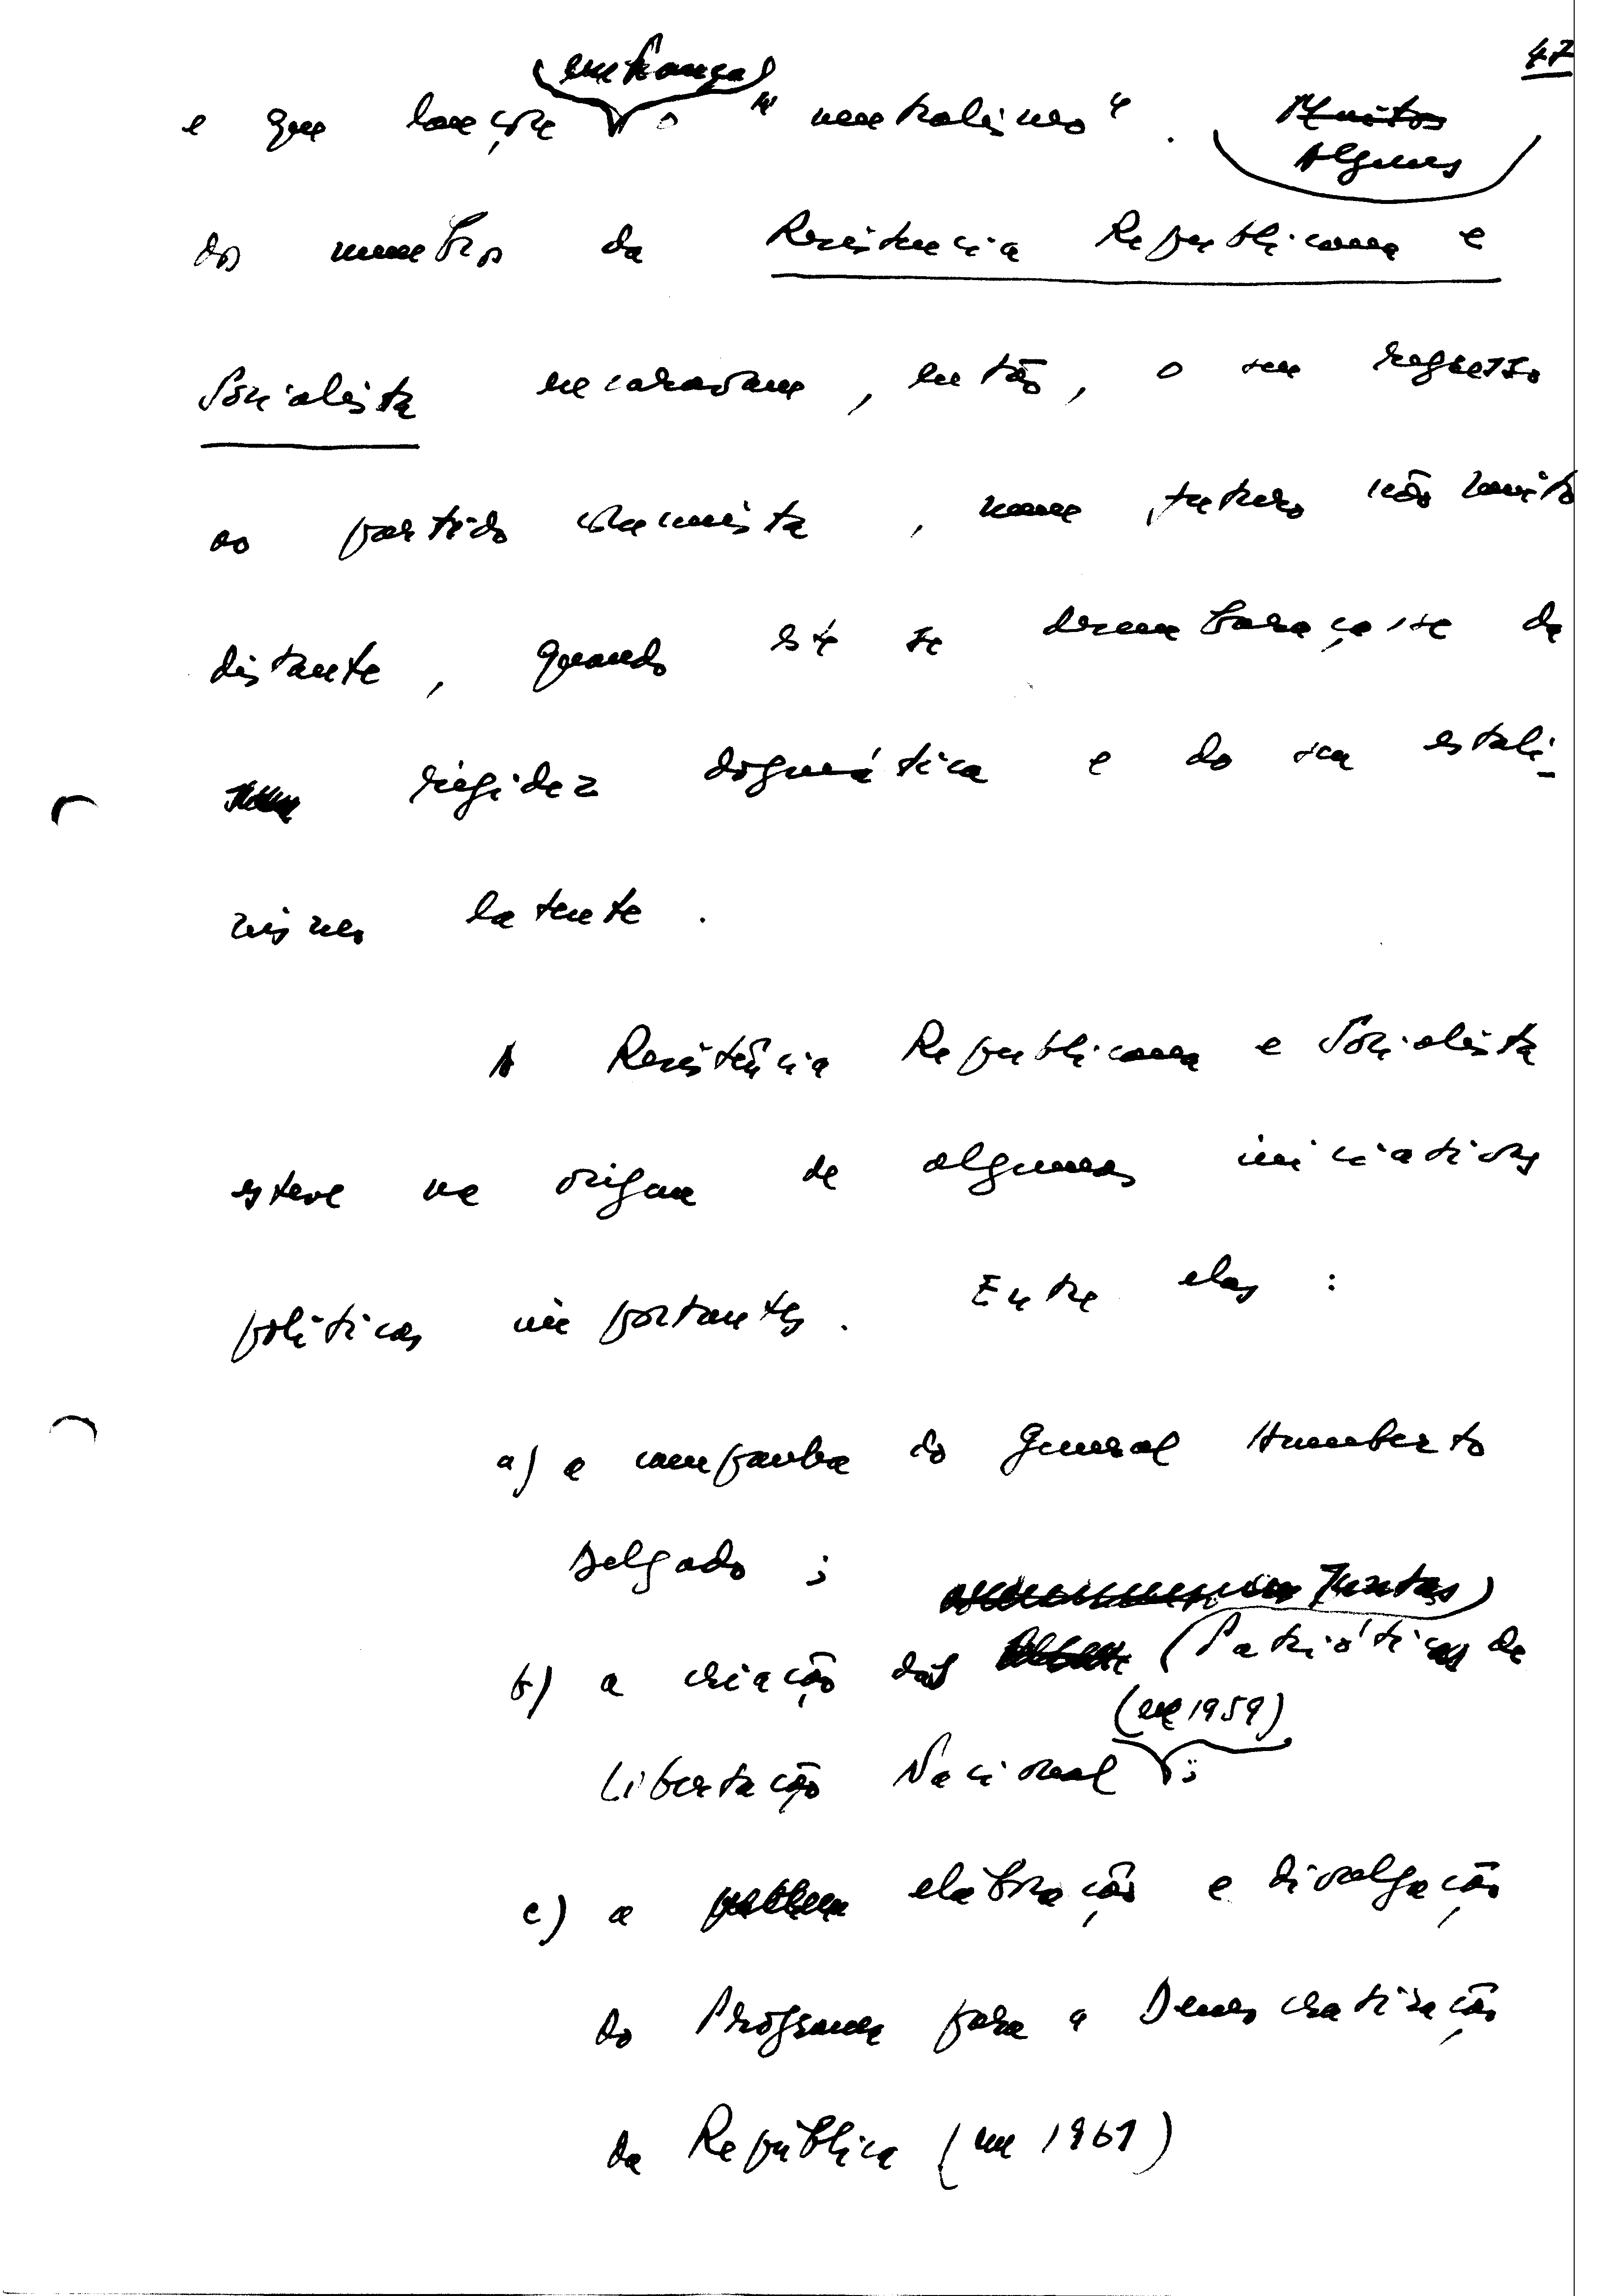 47
em França
e que lançou o "neutralismo". Muitos
Alguns
dos membros da Resistencia Republicana e
Socialista encaravam, então, o seu regresso
ao partido comunista, num futuro não muito
distante, quando este se desembaraçasse da
rigidez dogmática e do seu estali-
nismo latente.
A Resistência Republicana e Socialista
esteve na origem de algumas iniciativas
políticas importantes. Entre elas:
a) a campanha do General Humberto
Delgado;
Juntas
b) a criação das Patrióticas de
(em 1959)
Libertação Nacional;
c) a elaboração e divulgação
do Programa para a Democratização
da República (em 1961)